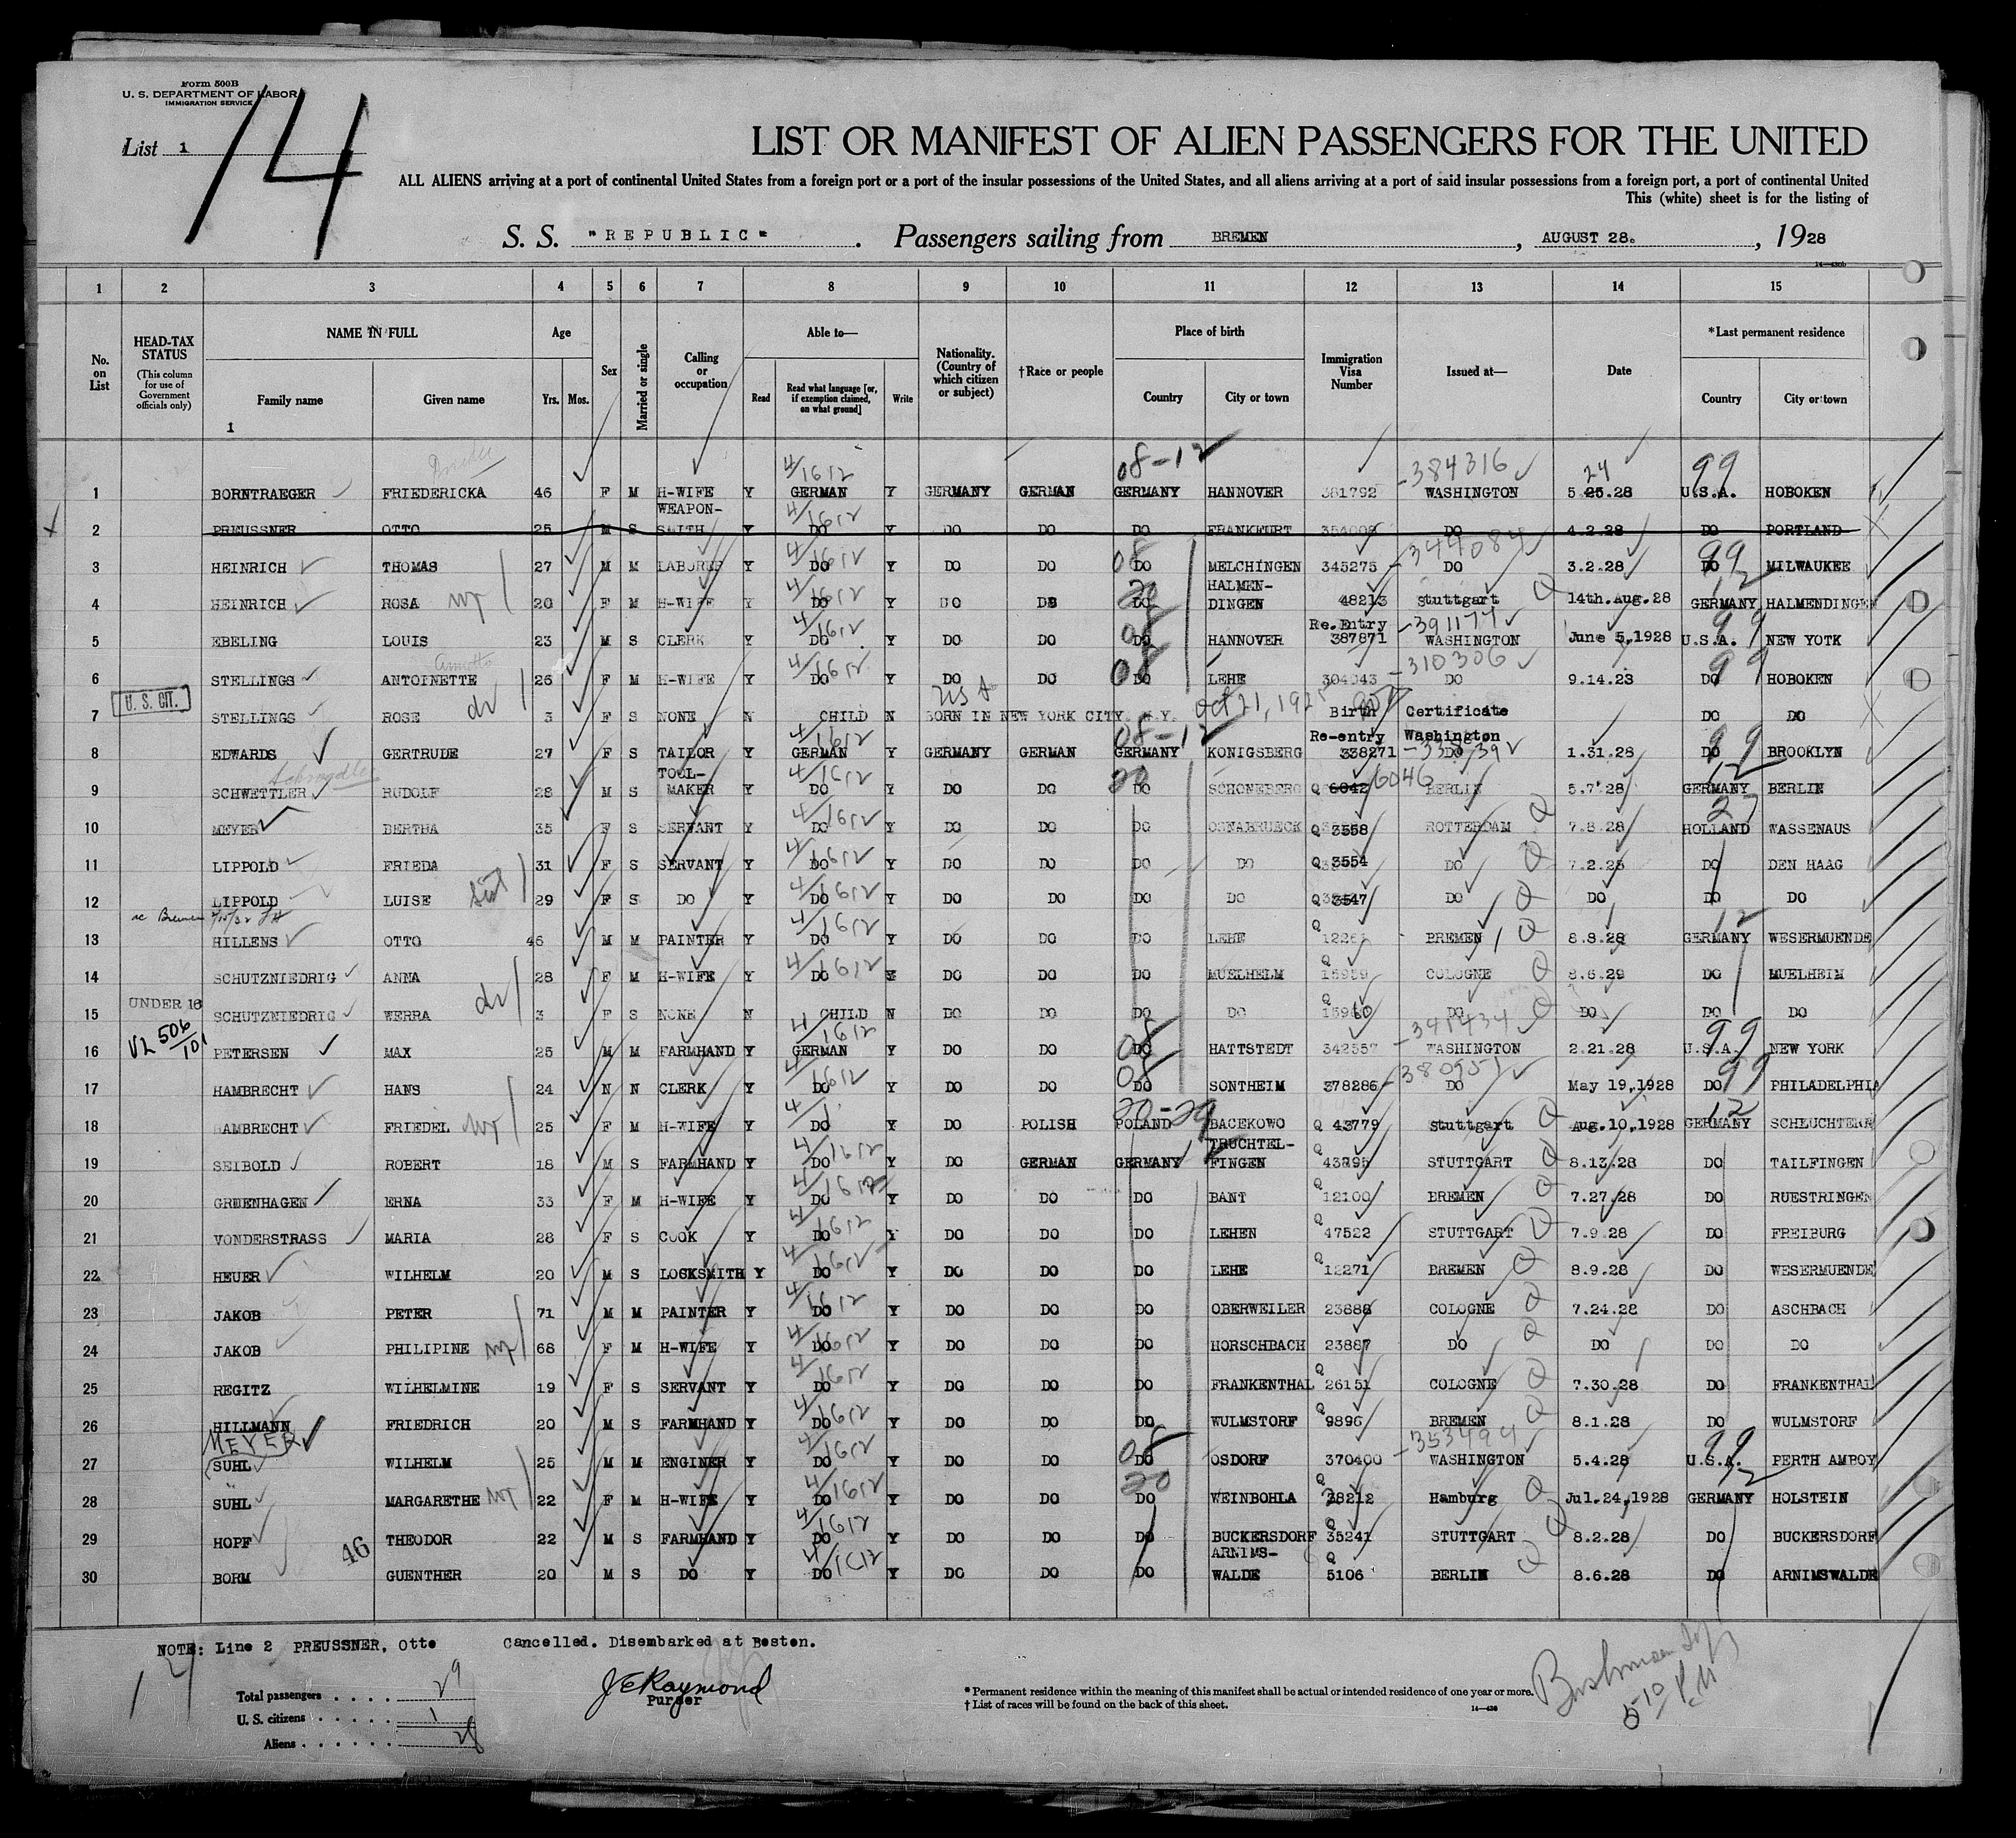 Form 500B
U. S. DEPARTMENT OF LABOR
IMMIGRATION SERVICE
List 1
14
LIST OR MANIFEST OF ALIEN PASSENGERS FOR THE UNITED
ALL ALIENS arriving at a port of continental United States from a foreign port or a port of the insular possessions of the United States, and all aliens arriving at a port of said insular possessions from a foreign port, a port of continental United
This (white) sheet is for the listing of
S. S. "REPUBLIC" . Passengers sailing from BREMEN , AUGUST 28. , 1928
1 2 3 4 5 6 7 8 9 10 11 12 13 14 15
No. on List
HEAD-TAX STATUS
(This column for use of Government officials only)
NAME IN FULL
Family name
Given name
1
Age
Yrs. Mos.
Sex
Married or single
Calling or occupation
Able to—
Read
Read what language [or, if exemption claimed, on what ground]
Write
Nationality. (Country of which citizen or subject)
†Race or people
Place of birth
Country
City or town
Immigration Visa Number
Issued at—
Date
*Last permanent residence
Country
City or town
4/1612 08-12 -384316 24 99
1 BORNTRAEGER FRIEDERICKA 46 F M H-WIFE Y GERMAN Y GERMANY GERMAN GERMANY HANNOVER 381792 WASHINGTON 5.25.28 U.S.A. HOBOKEN
2 PREUSSNER OTTO 25 M S WEAPON-SMITH Y DO Y DO DO DO FRANKFURT DO 4.2.28 DO PORTLAND
4/1612 08 -349084 99
3 HEINRICH THOMAS 27 M M LABORER Y DO Y DO DO DO MELCHINGEN 345275 DO 3.2.28 DO MILWAUKEE
4 HEINRICH ROSA 20 F M H-WIFE Y DO Y DO DO DO HALMEN-DINGEN 48213 Stuttgart 14th.Aug.28 GERMANY HALMENDINGEN
-391177 99
5 EBELING LOUIS 23 M S CLERK Y DO Y DO DO DO HANNOVER Re.Entry 387871 WASHINGTON June 5,1928 U.S.A. NEW YOTK
-310306 99
6 STELLINGS ANTOINETTE 26 F M H-WIFE Y DO Y DO DO DO LEHE DO 9.14.23 DO HOBOKEN
U. S. CIT.
USA Oct 21, 1925
7 STELLINGS ROSE 3 F S NONE N CHILD N BORN IN NEW YORK CITY. N.Y. Birth Certificate DO DO
08-12
8 EDWARDS GERTRUDE 27 F S TAILOR Y GERMAN Y GERMANY GERMAN GERMANY KONIGSBERG Re-entry 338271 Washington DO 1.31.28 DO BROOKLYN
6046 12
9 SCHWETTLER RUDOLF 28 M S TOOL-MAKER Y DO Y DO DO DO SCHONEBERG Q 6042 BERLIN 5.7.28 GERMANY BERLIN
10 MEYER BERTHA 35 F S SERVANT Y DO Y DO DO DO OSNABRUECK Q 3558 ROTTERDAM 7.8.28 HOLLAND WASSENAUS
11 LIPPOLD FRIEDA 31 F S SERVANT Y DO Y DO DO DO DO Q 3554 DO 7.2.28 DO DEN HAAG
12 LIPPOLD LUISE 29 F S DO Y DO Y DO DO DO DO Q 3547 DO DO DO DO
13 HILLENS OTTO 46 M M PAINTER Y DO Y DO DO DO LEHE Q BREMEN 8.8.28 GERMANY WESERMUENDE
14 SCHUTZNIEDRIG ANNA 28 F M H-WIFE Y DO Y DO DO DO MUELHELM Q 15959 COLOGNE 8.6.28 DO MUELHEIM
UNDER 16
15 SCHUTZNIEDRIG WERRA 3 F S NONE N CHILD N DO DO DO DO Q 15960 DO DO DO DO
VL 506/101 -341434 99
16 PETERSEN MAX 25 M M FARMHAND Y GERMAN Y DO DO DO HATTSTEDT 342557 WASHINGTON 2.21.28 U.S.A. NEW YORK
-380951 99
17 HAMBRECHT HANS 24 N N CLERK Y DO Y DO DO DO SONTHEIM 378286 DO May 19,1928 DO PHILADELPHIA
20-29 12
18 HAMBRECHT FRIEDEL 25 F M H-WIFE Y DO Y DO POLISH POLAND BACEKOWO Q 43779 Stuttgart Aug.10,1928 GERMANY SCHLUCHTERN
19 SEIBOLD ROBERT 18 M S FARMHAND Y DO Y DO GERMAN GERMANY TRUCHTEL-FINGEN Q 43895 STUTTGART 8.13.28 DO TAILFINGEN
20 GRUENHAGEN ERNA 33 F M H-WIFE Y DO Y DO DO DO BANT Q 12100 BREMEN 7.27.28 DO RUESTRINGEN
21 VONDERSTRASS MARIA 28 F S COOK Y DO Y DO DO DO LEHEN Q 47522 STUTTGART 7.9.28 DO FREIBURG
22 HEUER WILHELM 20 M S LOCKSMITH Y DO Y DO DO DO LEHE Q 12271 BREMEN 8.9.28 DO WESERMUENDE
23 JAKOB PETER 71 M M PAINTER Y DO Y DO DO DO OBERWEILER 23888 COLOGNE 7.24.28 DO ASCHBACH
24 JAKOB PHILIPINE 68 F M H-WIFE Y DO Y DO DO DO HORSCHBACH 23887 DO DO DO DO
25 REGITZ WILHELMINE 19 F S SERVANT Y DO Y DO DO DO FRANKENTHAL Q 26151 COLOGNE 7.30.28 DO FRANKENTHAL
26 HILLMANN FRIEDRICH 20 M S FARMHAND Y DO Y DO DO DO WULMSTORF Q 9896 BREMEN 8.1.28 DO WULMSTORF
MEYER 08 -353494 99
27 SUHL WILHELM 25 M M ENGINER Y DO Y DO DO DO OSDORF 370400 WASHINGTON 5.4.28 U.S.A. PERTH AMBOY
20 12
28 SUHL MARGARETHE 22 F M H-WIFE Y DO Y DO DO DO WEINBOHLA Q 28212 Hamburg Jul.24,1928 GERMANY HOLSTEIN
29 HOPF THEODOR 22 M S FARMHAND Y DO Y DO DO DO BUCKERSDORF Q 35241 STUTTGART 8.2.28 DO BUCKERSDORF
46
30 BORM GUENTHER 20 M S DO Y DO Y DO DO DO ARNIMS-WALDE Q 5106 BERLIN 8.6.28 DO ARNIMSWALDE
NOTE: Line 2 PREUSSNER, Otto Cancelled. Disembarked at Boston.
Total passengers . . . . 29
U. S. citizens . . . . . 1
Aliens . . . . . . 28
J E Raymond
Purser
* Permanent residence within the meaning of this manifest shall be actual or intended residence of one year or more.
† List of races will be found on the back of this sheet.
14—430